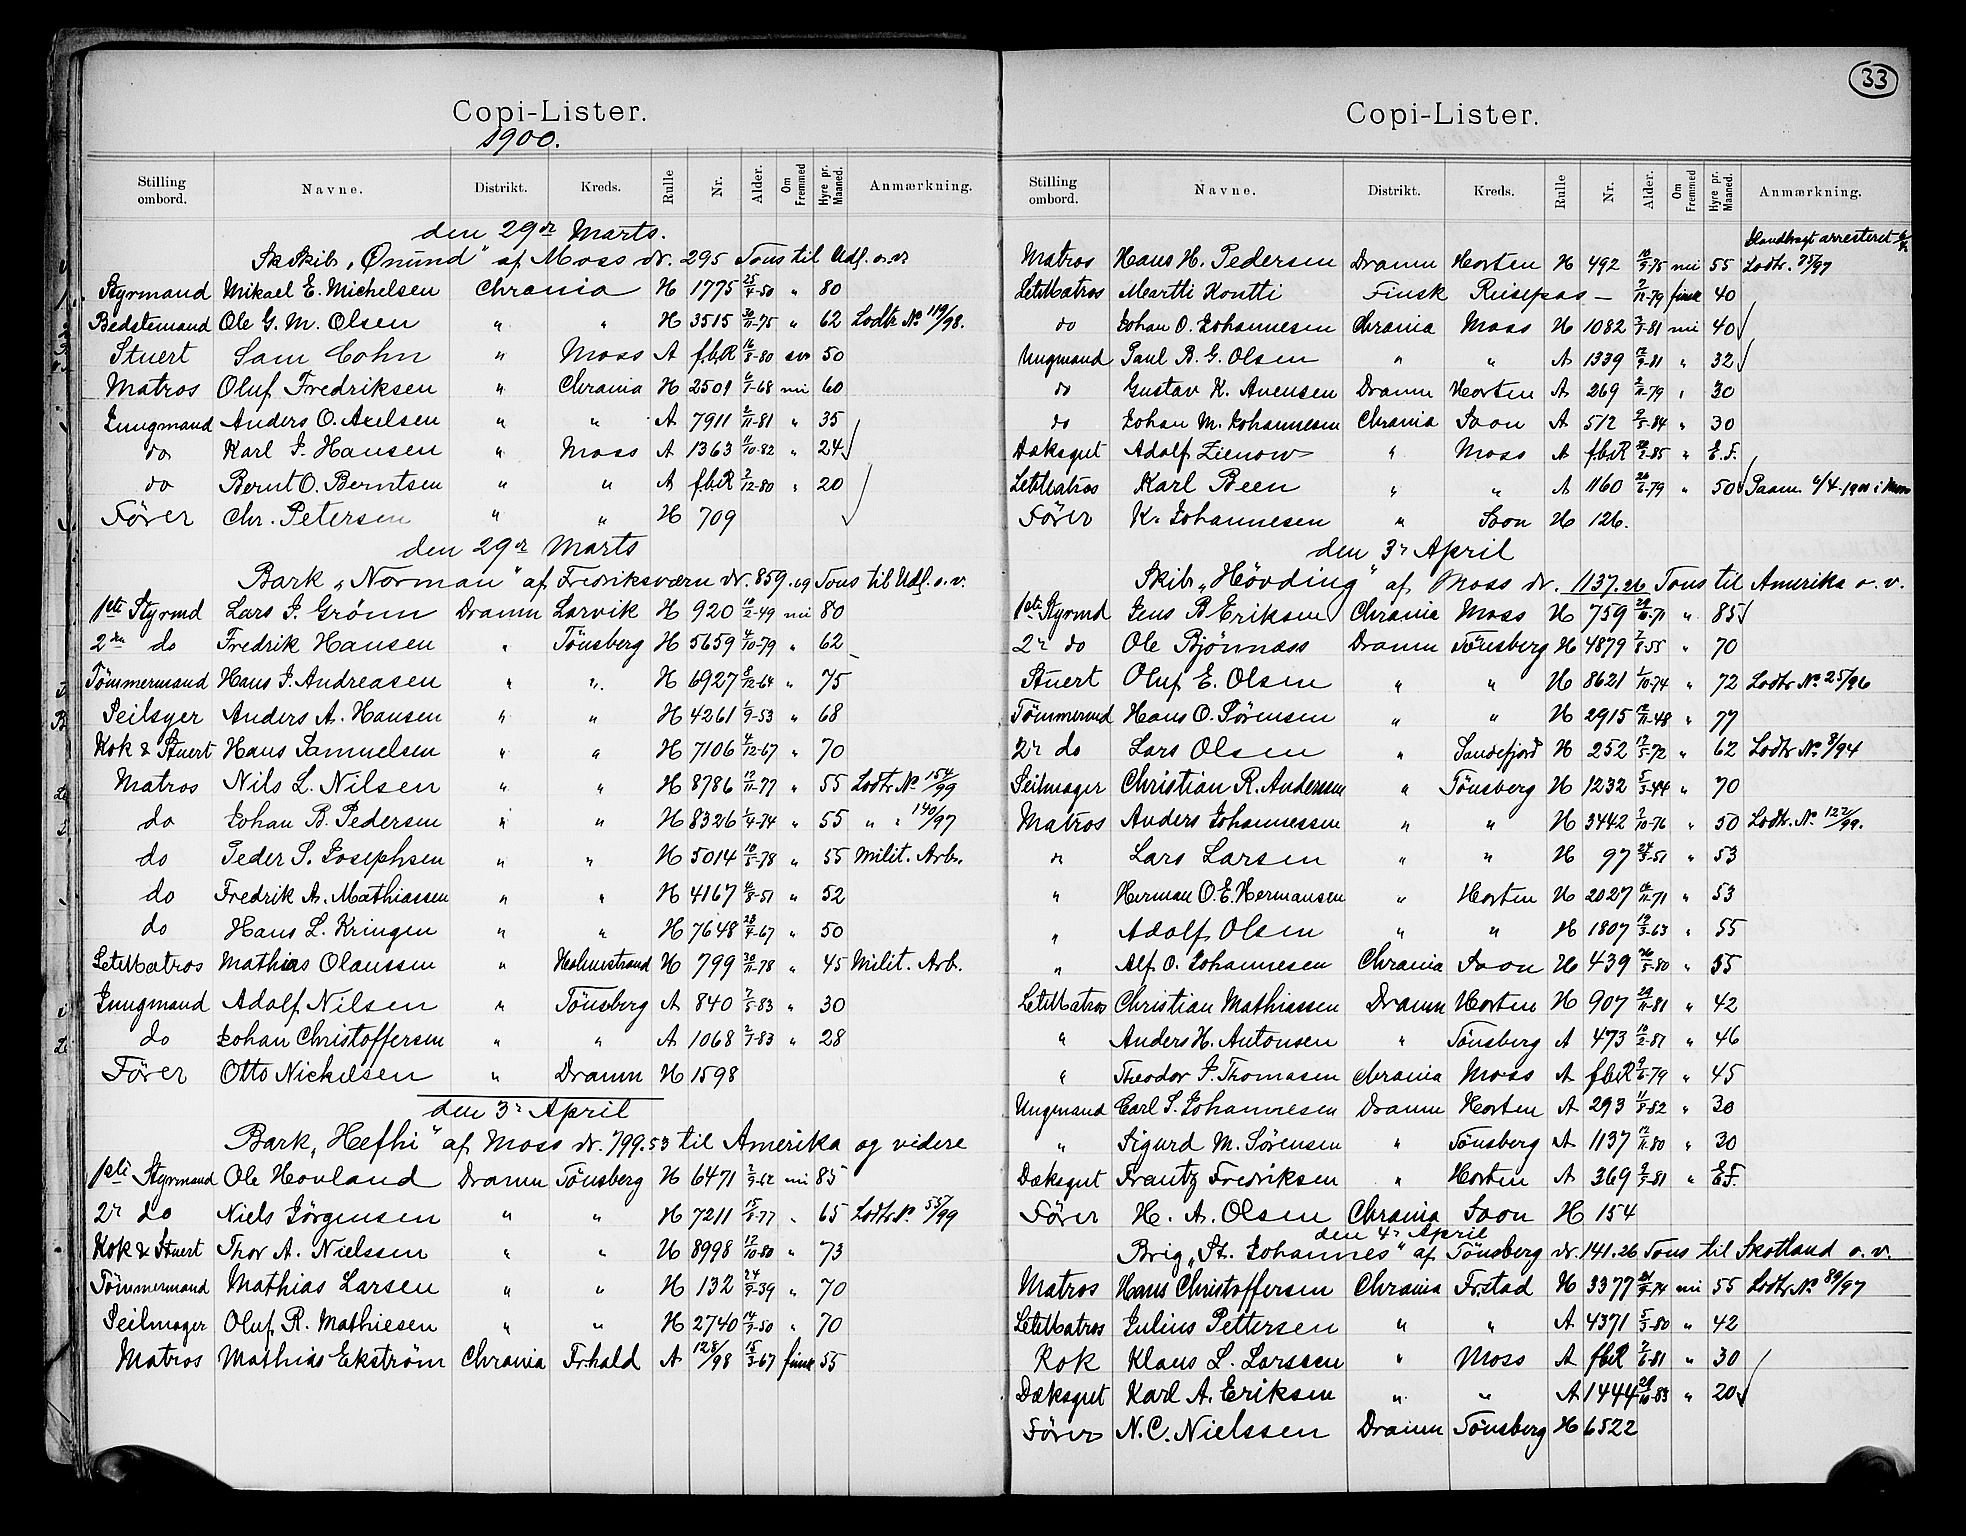 Copi-Lister.
1900.
Stilling ombord. Navne. Distrikt. Kreds. Rulle Nr. Alder. Om Fremmed Hyre pr. Maaned. Anmærkning.
den 29de Marts.
Sk Skib „Önund" af Moss dr. 295 Tons til Udl. o. v.
Styrmand Mikael E. Michelsen Chrania H 1775 25/4-50 " 80
Bedstemand Ole G. M. Olsen " " H 3515 30/11-75 " 62 Lodtr No 119/98.
Stuert Sam Cohn " Moss A f.b.R 16/8-80 sv 50
Matros Oluf Fredriksen " Chrania H 2509 6/1-68 mi 60
Jungmand Anders O. Axelsen " " A 7911 2/11-81 " 35
do Karl J. Hansen " Moss A 1363 11/10-82 " 24
do Bernt O. Berntsen " " A fbR 2/12-80 " 20
Förer Chr. Petersen " " H 709
den 29de Marts
Bark „Norman" af Fredriksværn dr. 859.69 Tons til Udl. o. v.
1ste Styrmd Lars J. Grönn Dramn Larvik H 920 10/2-49 mi 80
2den do Fredrik Hansen " Tönsberg H 5659 4/10-79 " 62
Tömmermand Hans J. Andreasen " " H 6927 8/12-64 " 75
Seilsyer Anders A. Hansen " " H 4261 1/9-53 " 68
Kok & Stuert Hans Samuelsen " " H 7106 4/12-67 " 70
Matros Nils L. Nilsen " " H 8786 12/11-77 " 55 Lodtr No 154/99
do Johan B. Pedersen " " H 8326 1/4-74 " 55 " " 140/97
do Peder S. Josephsen " " H 5014 10/5-78 " 55 Milit. Arb.
do Fredrik A. Mathiassen " " H 4167 16/8-51 " 52
do Hans L. Kringen " " H 7648 28/4-67 " 50
LetMatros Mathias Olaussen " Holmestrand H 799 30/11-78 " 45 Milit. Arb.
Jungmand Adolf Nilsen " Tönsberg A 840 7/5-83 " 30
do Johan Christoffersen " " A 1068 2/7-83 " 28
Förer Otto Nickelsen " Dramn H 1598
den 3die April
Bark „Hefhi" af Moss dr. 799.53 til Amerika og videre
1ste Styrmand Ole Hovland Dramn Tönsberg H 6471 2/9-62 mi 85
2r do Niels Jörgensen " " H 7211 15/6-77 " 65 Lodtr No. 53/99
Kok & Stuert Thor A. Nielssen " " H 8998 12/10-80 " 73
Tömmermand Mathias Larsen " " H 132 24/9-39 " 70
Seilmager Oluf R. Mathiesen " " H 2740 14/9-50 " 70
Matros Mathias Ekström Chrania Frhald A 128/98 15/3-67 finsk 55
33
Copi-Lister.
Stilling ombord. Navne. Distrikt. Kreds. Rulle Nr. Alder. Om Fremmed Hyre pr. Maaned. Anmærkning.
arresteret
Matros Hans H. Pedersen Dramn Horten H 492 10/9-75 mi 55 Lodtr. 75/97
LetMatros Martti Kontti Finsk Reisepas - 2/11-79 finsk 40
do Johan O. Johannesen Chrania Moss H 1082 2/7-81 mi 40
Ungmand Paul B. G. Olsen " " A 1339 12/9-81 " 32
do Gustav K. Avensen Dramn Horten A 269 2/11-79 " 30
do Johan M. Johannesen Chrania Soon A 512 2/5-84 " 30
Dæksgut Adolf Zienow " Moss A f.b.R 30/5-85 " E.F.
LetMatros Karl Been " " A 1160 26/6-79 " 50 Paam. 4/4-1900 i Moss
Förer K. Johannesen " Soon H 126.
den 3die April
Skib „Hövding" af Moss dr. 1137.26 Tons til Amerika o. v.
1ste Styrmd Jens B Eriksen Chrania Moss H 759 28/10-71 " 85
2r do Ole Bjönnæss Dramn Tönsberg H 4879 7/8-55 " 70
Stuert Oluf E. Olsen " " H 8621 1/10-74 " 72 Lodtr No. 25/96
Tömmermd Hans O. Sörensen " " H 2915 12/11-48 " 77
2r do Lars Olsen " Sandefjord H 252 17/5-72 " 62 Lodtr No. 8/94
Seilmager Christian R. Andersen " Tönsberg H 1232 5/5-44 " 70
Matros Anders Johannessen " " H 3442 2/10-76 " 50 Lodtr. No. 122/99.
" Lars Larsen " " H 97 24/3-51 " 53
" Herman O. E. Hermansen " Horten H 2027 16/11-71 " 53
" Adolf Olsen " " H 1807 19/3-63 " 55
" Alf O. Johannesen Chrania Soon H 439 26/5-80 " 55
LetMatros Christian Mathiassen Dramn Horten H 907 29/11-81 " 42
" Anders H. Antonsen " Tönsberg A 473 12/2-81 " 46
" Theodor J. Thomasen Chrania Moss A fbR 9/6-79 " 45
Ungmand Carl S. Johannesen Dramn Horten A 293 11/8-82 " 30
" Sigurd M. Sörensen " Tönsberg A 1137 12/11-80 " 30
Dæksgut Frantz Fredriksen " Horten A 369 2/5-81 " E.F.
Förer H. A. Olsen Chrania Soon H 154
den 4de April
Brig „St. Johannes" af Tönsberg dr. 141.26 Tons til Skotland o. v.
Matros Hans Christoffersen Chrania Fr.stad H 3377 21/9-74 mi 55 Lodtr No 89/97
LetMatros Julius Pettersen " " A 4371 5/3-80 " 42
Kok Klaus L. Larssen " Moss A fbR 2/6-81 " 30
Dæksgut Karl A. Eriksen " " A 1444 29/10-83 " 20
Förer N. C. Nielssen Dramn Tönsberg H 6522